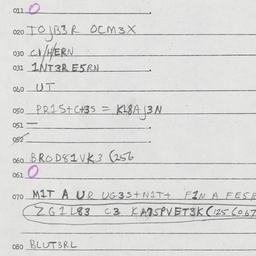 011 O
020 TOJB3R OCM3X
030 C1/HERN
031 1NT3RE5RN
040 UT
050 PR1St Ct3S = KL8AJ3N
051 —
052
060 BROD81VK3 (256
061 O
070 M1T A UR UG3S+N1T+ F1N A FESR
ZG1L83 C3 KA75PVET3K (125 (0.67
080 BLUT3RL